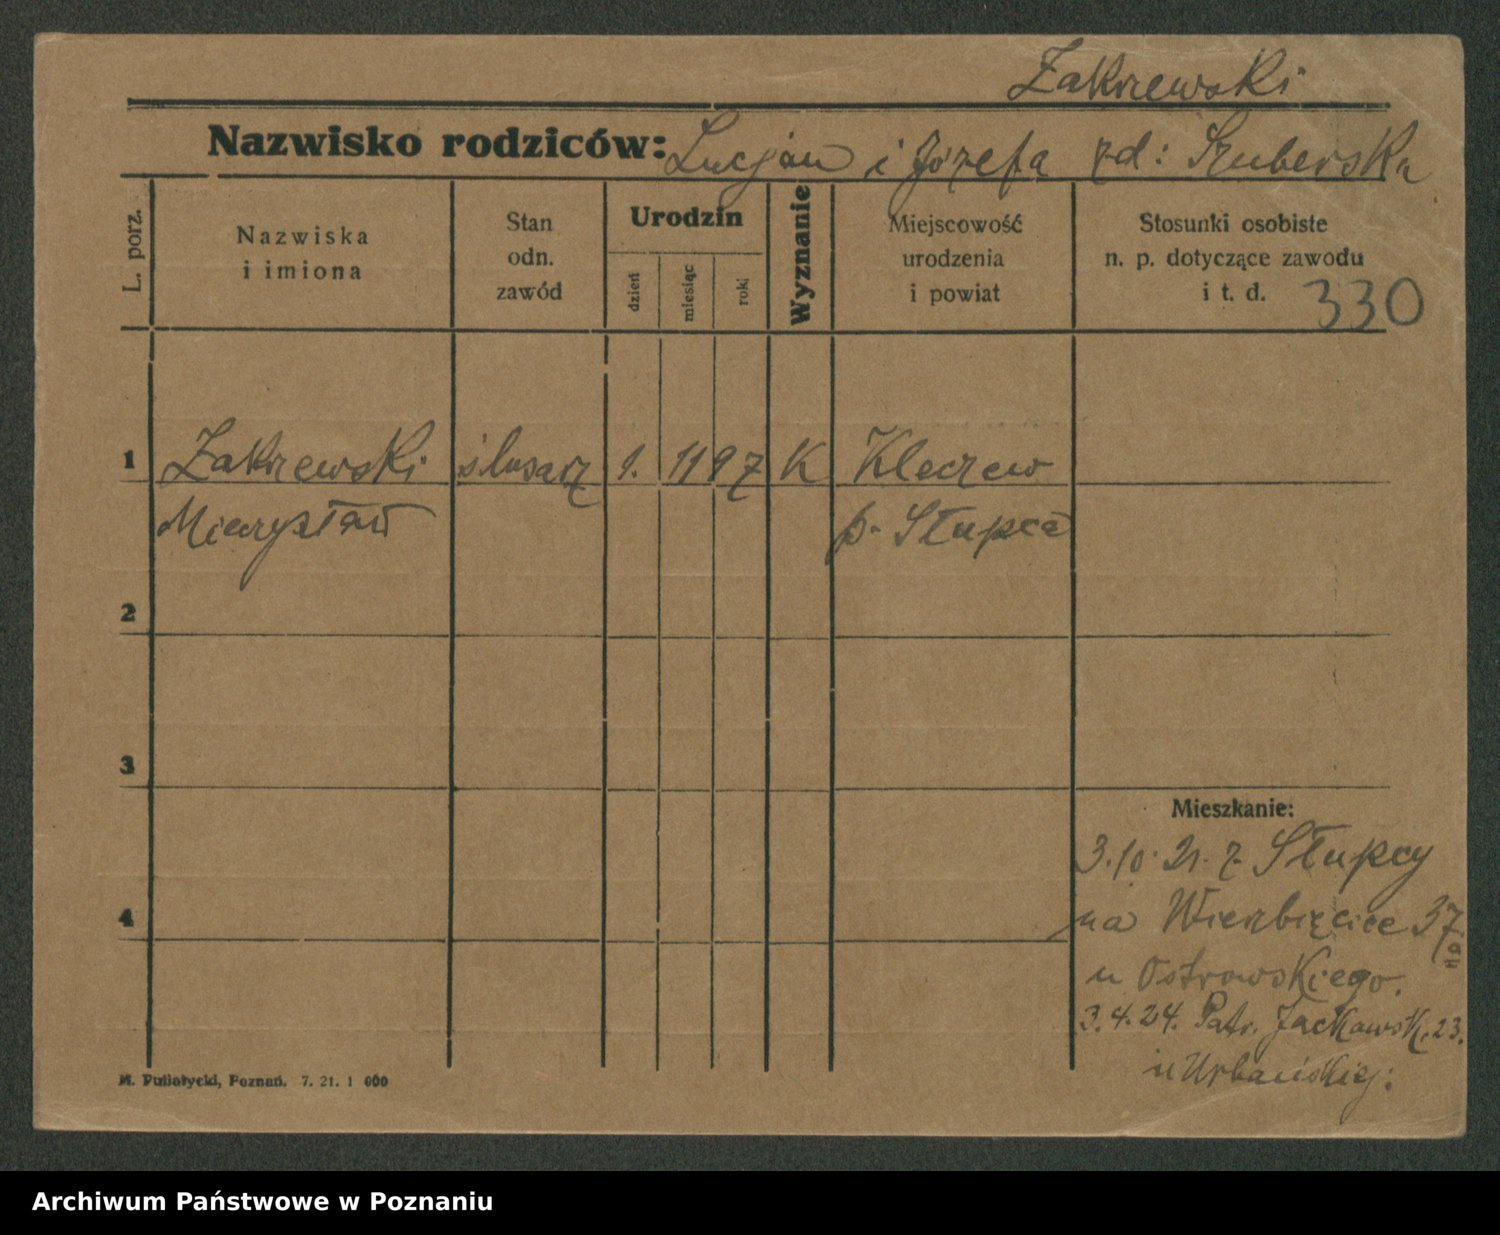 Zakrzewski
Nazwisko rodziców: Lucjan i Józefa zd: Szuberska
L. porz.
Nazwiska
i imiona
Stan
odn.
zawód
Urodzin
dzień
miesiąc
rok
Wyznanie
Miejscowość
urodzenia
i powiat
Stosunki osobiste
n. p. dotyczące zawodu
i t. d. 330
1 Zakrzewski ślusarz 1. 11 97 K Kleczew
Mieczysław p. Słupca
2
3
Mieszkanie:
3.10.21. z Słupcy
4 na Wierzbięcice 37
u Ostrowskiego.
3.4.24. Patr. Jackowsk. 23.
u Urbańskiej:
M. Putiatycki, Poznań. 7. 21. 1 000
Archiwum Państwowe w Poznaniu